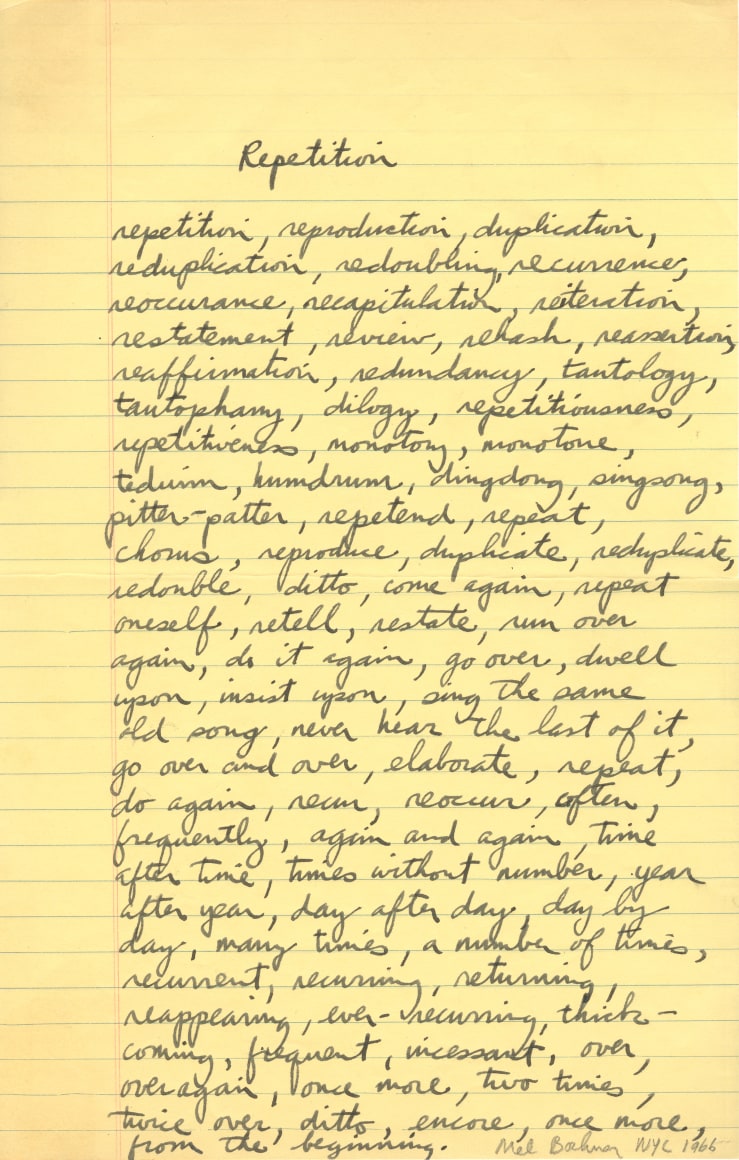 Repetition
repetition, reproduction, duplication,
reduplication, redoubling, recurrence,
reoccurance, recapitulation, reiteration,
restatement, review, rehash, reassertion,
reaffirmation, redundancy, tautology,
tautophany, dilogy, repetitiousness,
repetitiveness, monotony, monotone,
tedium, humdrum, dingdong, singsong,
pitter-patter, repetend, repeat,
chorus, reproduce, duplicate, reduplicate,
redouble, ditto, come again, repeat
oneself, retell, restate, run over
again, do it again, go over, dwell
upon, insist upon, sing the same
old song, never hear the last of it,
go over and over, elaborate, repeat,
do again, recur, reoccur, often,
frequently, again and again, time
after time, times without number, year
after year, day after day, day by
day, many times, a number of times,
recurrent, recurring, returning,
reappearing, ever-recurring, thick-
coming, frequent, incessant, over,
over again, once more, two times,
twice over, ditto, encore, once more,
from the beginning. Mel Bochner NYC 1966